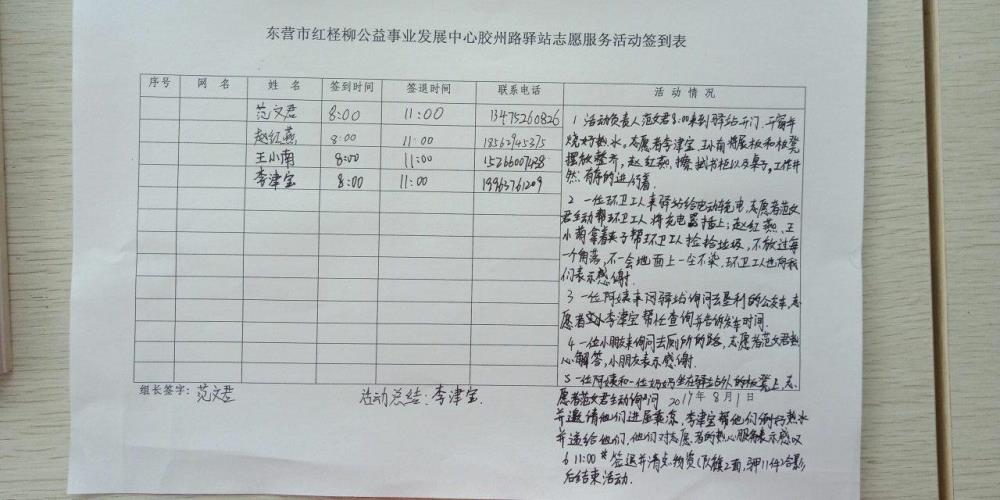 东营市红柽柳公益事业发展中心胶州路驿站志愿服务活动签到表
序号 网 名 姓 名 签到时间 签退时间 联系电话 活 动 情 况
范文君 8:00 11:00 13475260826
赵红燕 8:00 11:00 18562945375
王小南 8:00 11:00
李津宝 8:00 11:00
1 活动负责人范文君8:00来到驿站开门、开窗并
烧好热水。志愿者李津宝、王小南将展板和板凳
摆放整齐,赵红燕、擦拭书柜以及桌子。工作井
然有序的进行着.
2 一位环卫工人来驿站给电动车充电,志愿者范文
君主动帮环卫工人将充电器插上;赵红燕、王
小南拿着夹子帮环卫工人捡拾垃圾,不放过每
一个角落,不一会地面上一尘不染.环卫工人也向我
们表示感谢.
3 一位阿姨来问驿站询问去垦利的公交车,志
愿者李津宝帮忙查询并告诉发车时间.
4 一位小朋友询问去厕所的路,志愿者范文君热
心解答,小朋友表示感谢.
5 一位阿姨和一位奶奶坐在驿站外的板凳上,志
愿者范文君主动询问
组长签字:范文君 活动总结:李津宝
8月1日
并邀请他们进屋乘凉,李津宝帮他们倒好热水
并递给他们,他们对志愿者的热心服务表示感叹
6 11:00 签退并清点物资(队旗2面,马甲11件)合影
后结束活动.